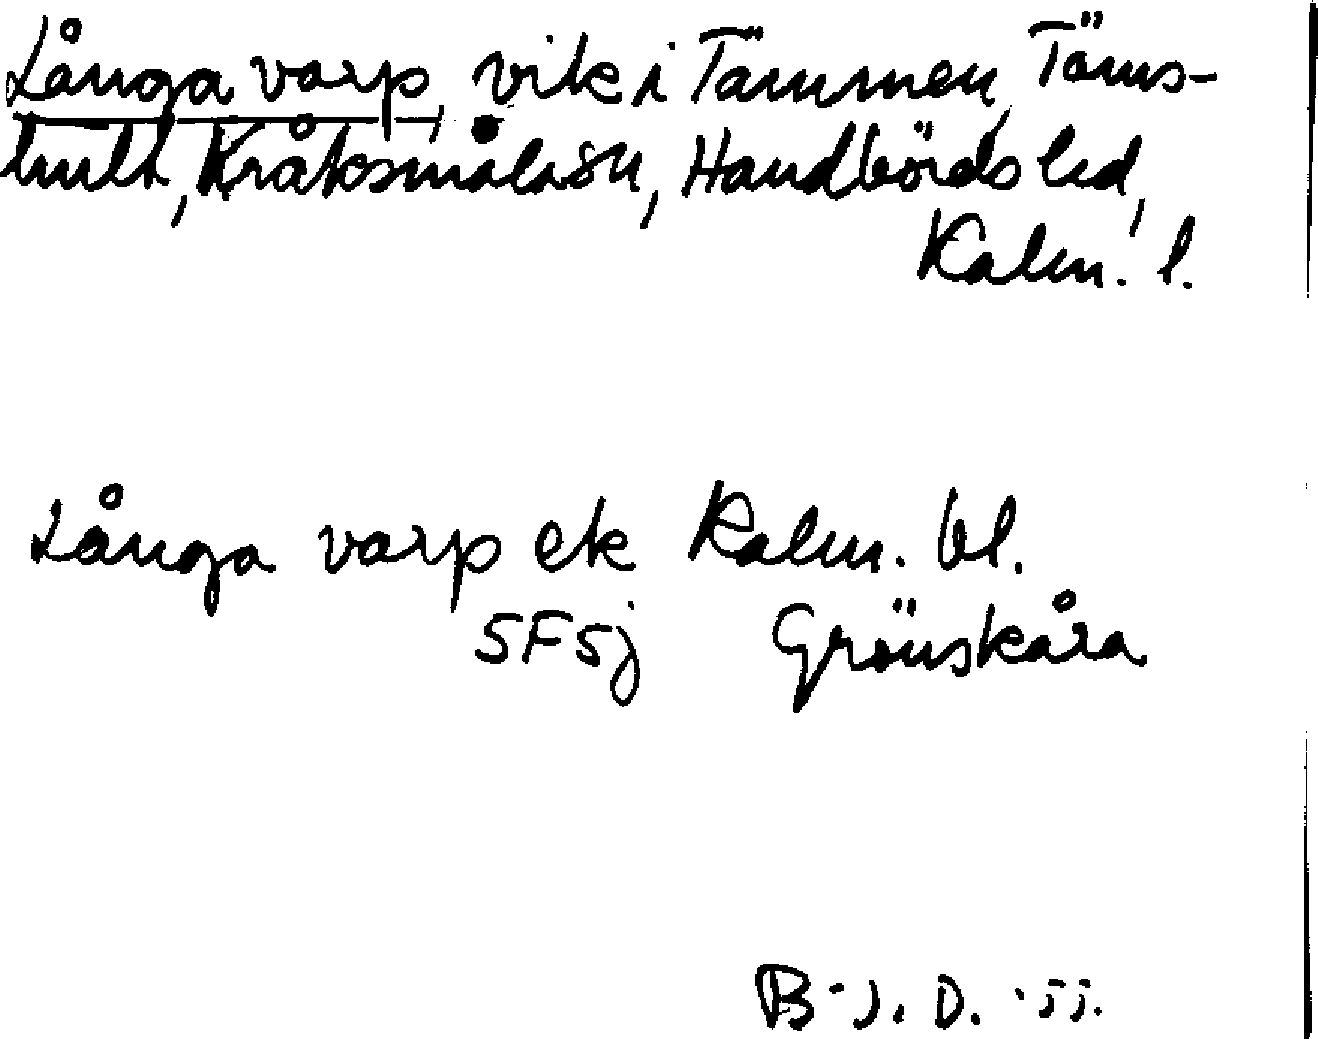 Långa varp, vik i Tämmen, Täms-
hult, Kråksmåla sn, Handbörds hd,
Kalm. l.
Långa varp ek Kalm. bl.
SFSj Grönskåra
B-J. D. -55.